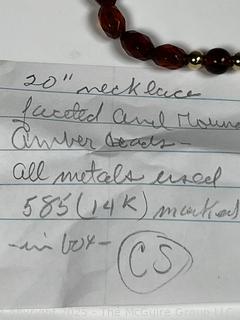 20" necklace
faceted and round
amber beads -
all metals used
585 (14K) marked
- in box -
CS
Copyright 2025 - The McGuire Group LLC